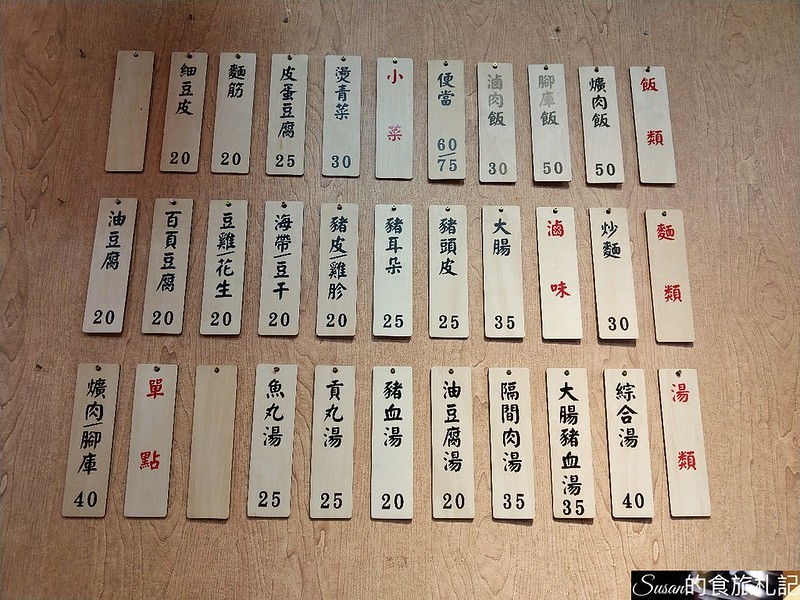 飯類
爌肉飯 50
腳庫飯 50
滷肉飯 30
便當 60/75
小菜
燙青菜 30
皮蛋豆腐 25
麵筋 20
細豆皮 20
麵類
炒麵 30
滷味
大腸 35
豬頭皮 25
豬耳朵 25
豬皮/雞胗 20
海帶/豆干 20
豆雞/花生 20
百頁豆腐 20
油豆腐 20
湯類
綜合湯 40
大腸豬血湯 35
隔間肉湯 35
油豆腐湯 20
豬血湯 20
貢丸湯 25
魚丸湯 25
單點
爌肉/腳庫 40
Susan的食旅札記